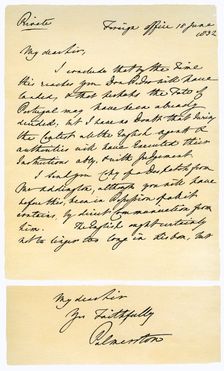 Private
Foreign Office 18 June
1832
My dear Sir,
I conclude that by the Time
this reaches you Don Pedro will have
landed, & that perhaps the Fate of
Portugal may have been already
decided, but I have no Doubt that during
the Contest all the English agents &
authorities will have Executed their
Instructions ably & with Judgement.
I send you Copy of a Despatch from
Mr Addington, although you will have
before this, been in Possession of all it
contains, by direct Communication from
him. The English ought certainly
not to linger too long in the
My dear Sir
Yrs Faithfully
Palmerston